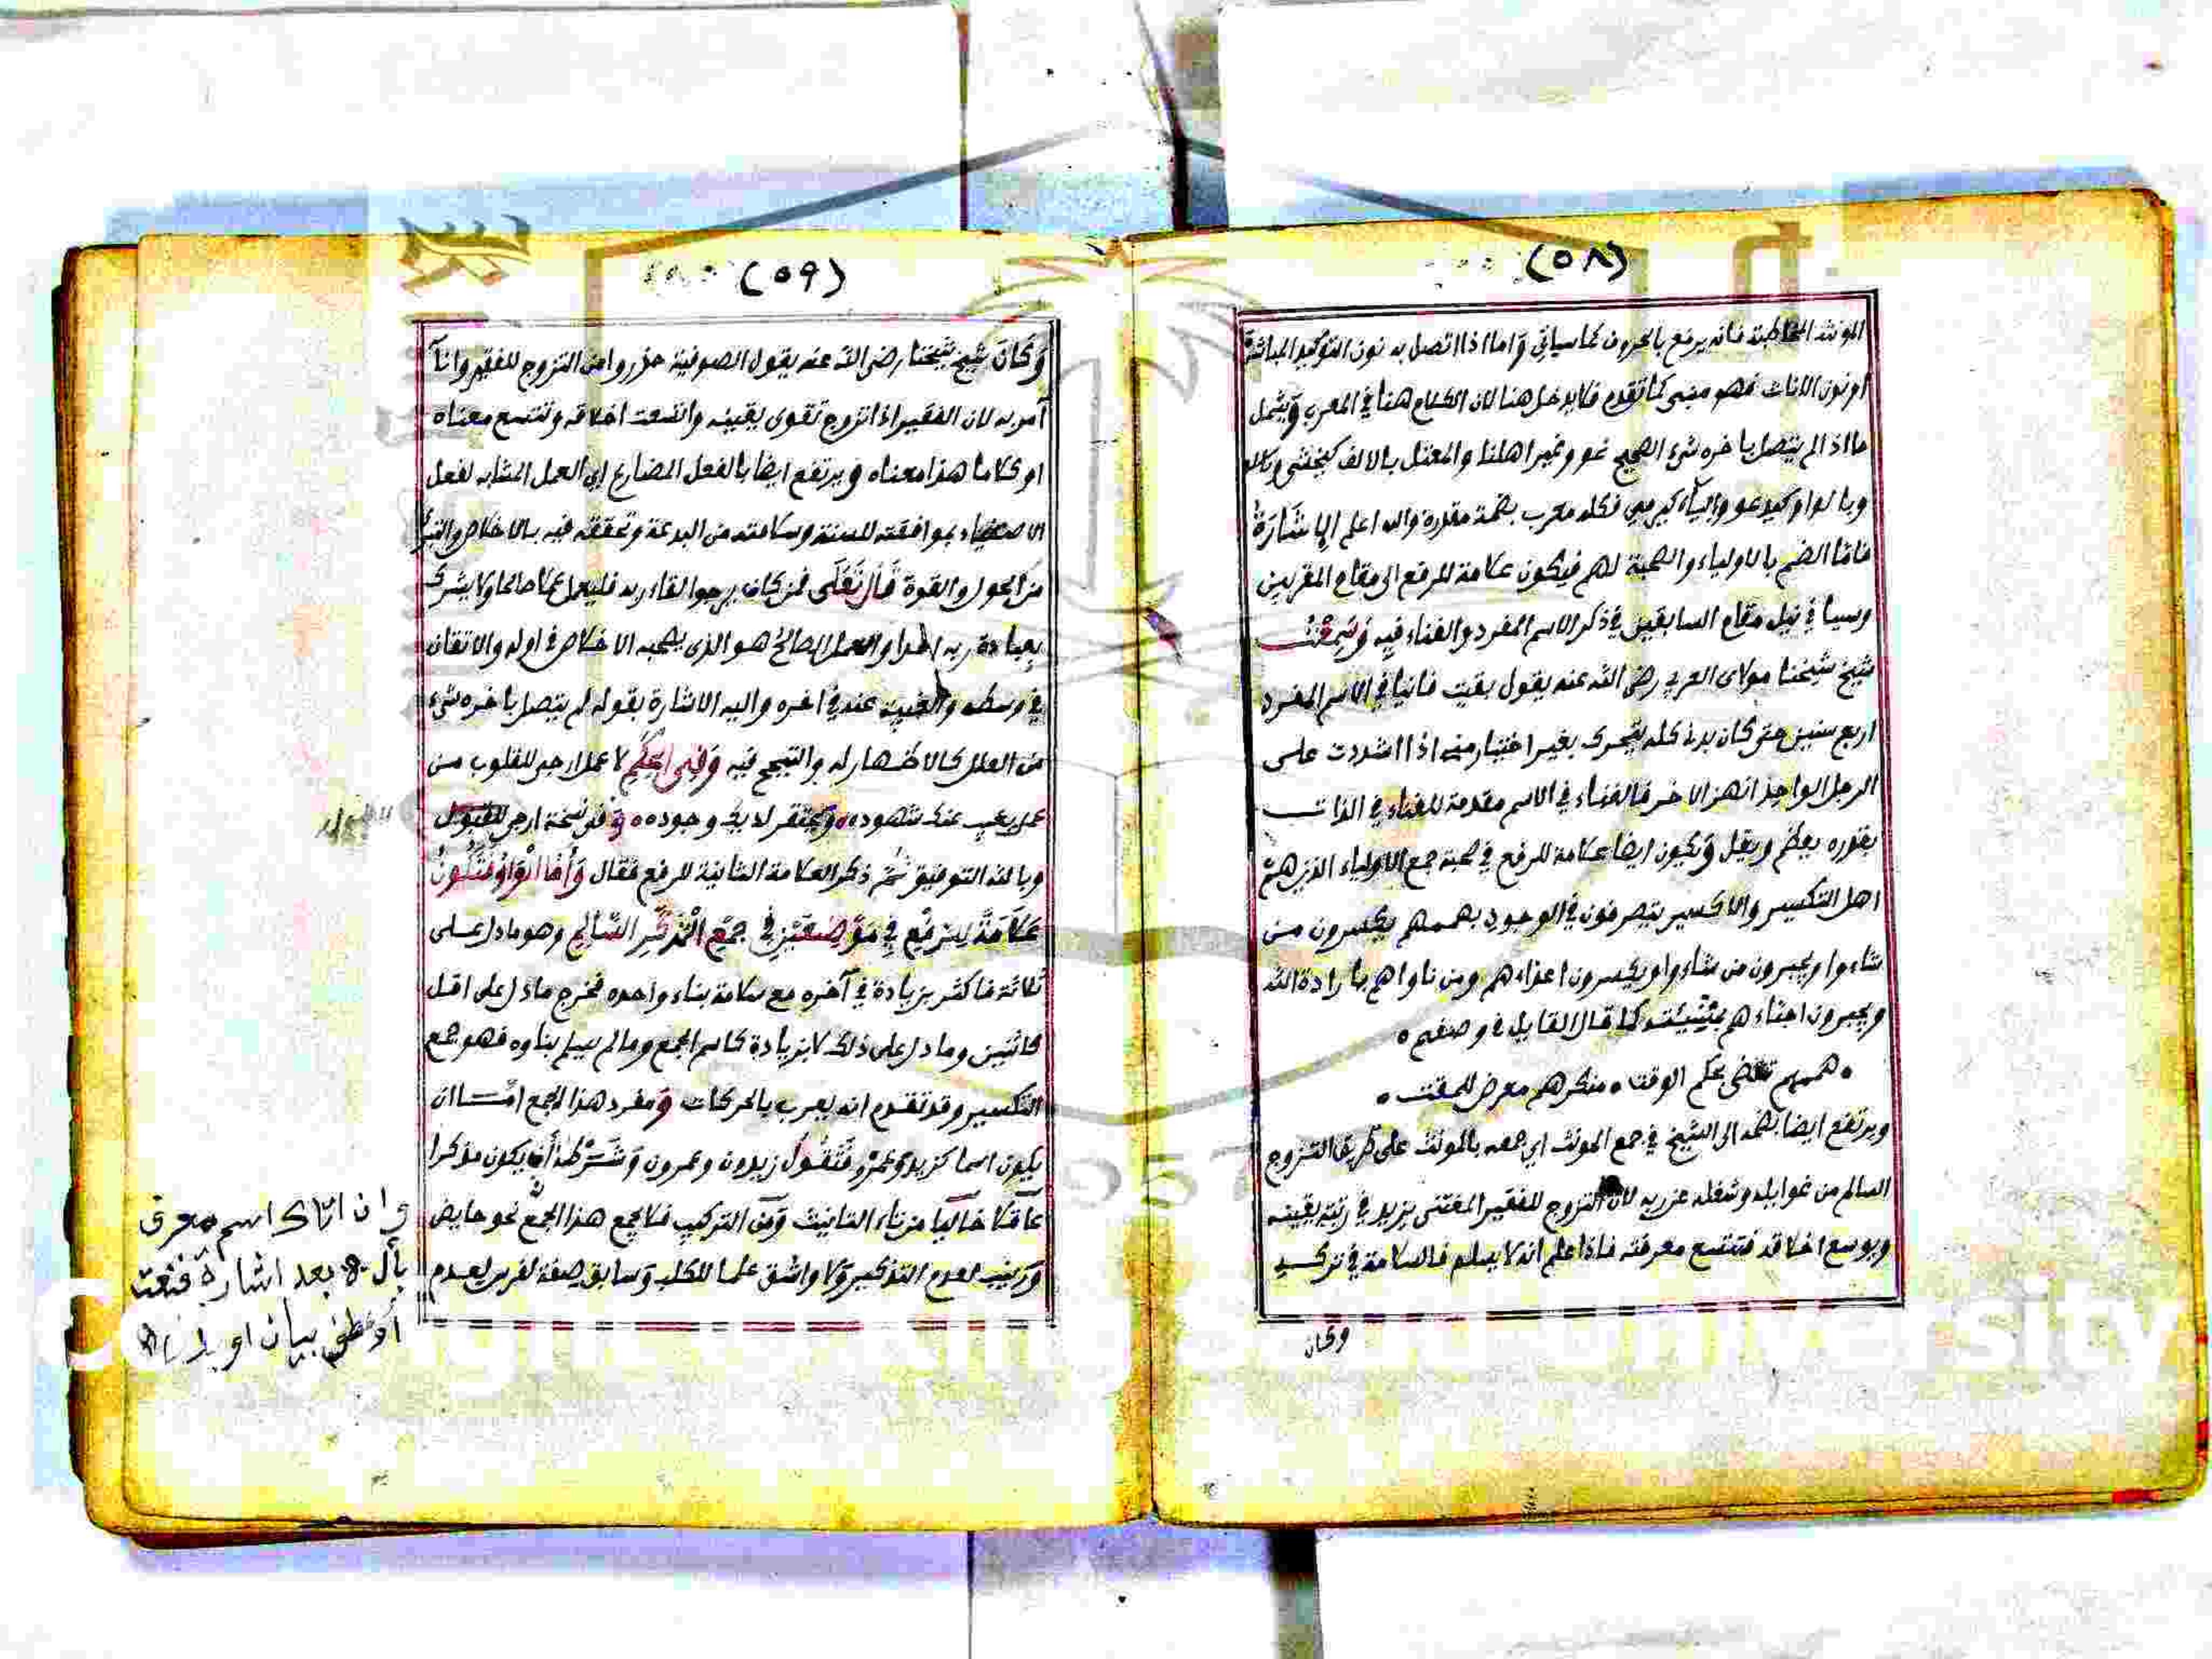 (٥٨)
المونثة المخاطبة فانه يرفع بالحروف كما سياتي واما اذا اتصل به نون التوكيد المباشرة
او نون الاناث فهو مبني كما تقدم فلا يدخل هنا لان الكلام هنا في المعرب ويشمل
ما اذا لم يتصل باخره شيء الصحيح نحو ونمير اهلنا والمعتل بالالف كيخشى
وبالواو كيدعو والياء كيرمي فكله معرب بضمة مقدرة والله اعلم الاشارة
فاما الضم بالاولياء والصحبة لهم فيكون علامة للرفع الى مقام المقربين
وسيا في نيل مقام السابقين في ذكر الاسم المفرد والفناء فيه وسمعت
شيخ شيخنا مولاى العربي رضى الله عنه يقول بقيت فانيا في الاسم المفرد
اربع سنين حتى كان بدني كله يتحرك بغير اختيار مني اذا شددت على
الرجل الواحد انهز الاخر فالفناء في الاسم مقدمة للفناء في الذات
بقدره يعظم ويقل ويكون ايضا علامة للرفع في صحبة جمع الاولياء الذين هم
اهل التكسير والاكسير يتصرفون في الوجود بهممهم يكسرون من
شاءوا ويجبرون من شاءوا ويكسرون اعداءهم ومن ناواهم بارادة الله
ويجبرون احباءهم بمشيئته كما قال القايل في وصفهم
هممهم تقضى بحكم الوقت • منكرهم معرض للمقت
ويرتفع ايضا بضمه الى الشيخ في جمع المونث اي جمعه بالمونث على طريق التزوج
السالم من غوايله وشغله عن ربه لان التزوج للفقير المغتنى يزيد في رتبة يقينه
ويوسع اخلاقه فتتسع معرفته فاذا علم انه لا يسلم فالسلامة في تركه
وكان
(٥٩)
وكان شيخ شيخنا رضى الله عنه يقول الصوفية حذروا من التزوج للفقير وانا
آمر به لان الفقير اذا تزوج تقوى يقينه واتسعت اخلاقه وتتسع معناه
او كلاما هذا معناه ويرتفع ايضا بالفعل المضارع اي العمل المشابه لفعل
الاصفياء بموافقته للسنة وسلامته من البدعة وتحققه فيه بالاخلاص والتبرئ
من الحول والقوة قال تعلى فمن كان يرجوا لقاء ربه فليعمل عملا صالحا ولا يشرك
بعبادة ربه احدا والعمل الصالح هو الذى يصحبه الاخلاص في اوله والاتقان
في وسطه والغيبة عنه في اخره واليه الاشارة بقوله لم يتصل باخره شيء
من العلل كالاظهار له والتبجح فيه وفي الحكم لا عمل ارجى للقلوب من
عمل يغيب عنك شهوده ويحتقر لديك وجوده وفي نسخة ارجى للقبول
وبالله التوفيق ثم ذكر العلامة الثانية للرفع فقال وأما الواو فتكون
علامة للرفع في موضعين في جمع المذكر السالم وهو ما دل على
ثلاثة فاكثر بزيادة في آخره مع سلامة بناء واحده فخرج ما دل على اقل
كاثنين وما دل على ذلك لا بزيادة كاسم الجمع وما لم يسلم بناوه فهو جمع
التكسير وقد تقدم انه يعرب بالحركات ومفرد هذا الجمع اما ان
يكون اسما كزيد وعمرو فتقول زيدون وعمرون وشرطه أن يكون مذكرا
عاقلا خاليا من تاء التانيث ومن التركيب فلا يجمع هذا الجمع نحو حايض
وزينب لعدم التذكير ولا واشق علما للكلب وسابق صفة لفرس لعدم
وان اتاك اسم معرف
بأل بعد اشارة فنعت
أو عطف بيان او بدل